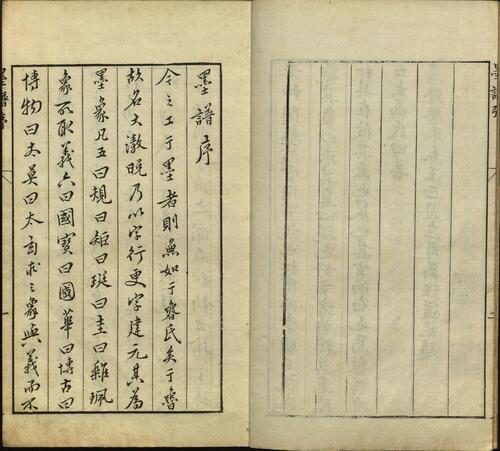 墨譜
墨譜序
今之工于墨者則無如于魯氏矣于魯
故名大激晚乃以字行更字建元其為
墨象凡五曰規曰矩曰珽曰圭曰雜珮
象所取義六曰國寶曰國華曰博古曰
博物曰太莫曰太玄求之象與義而不
墨譜序